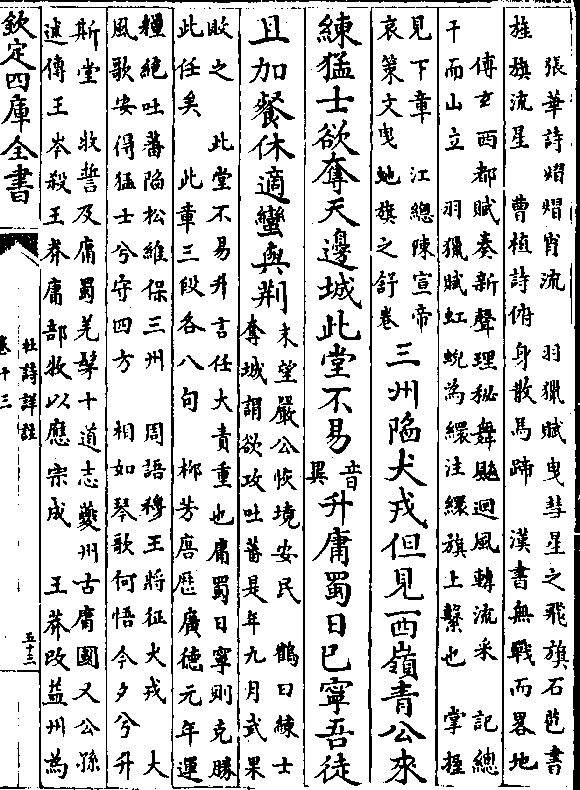 張華詩熠熠宵流　羽獵賦曳彗星之飛旗石苞書
旌旗流星　曹植詩俯身散馬蹄　漢書無戰而畧地
傅玄西都賦奏新聲理秘舞飈迴風轉流采　記總
干而山立　羽獵賦虹蜺為繯注繯旗上繫也　掌握
見下章　江總陳宣帝
哀策文曳虵旗之舒卷
三州陷犬戎但見西嶺青公來
練猛士欲奪天邊城此堂不易音異升庸蜀日已寧吾徒
且加餐休適蠻與荆
末望嚴公恢境安民　鶴曰練士
奪城謂欲攻吐蕃是年九月武果
敗之　此堂不易升言任大責重也庸蜀日寧則克勝
此任矣　此章三段各八句　栁芳唐歷廣德元年運
糧絶吐蕃陷松維保三州　周語穆王將征犬戎　大
風歌安得猛士兮守四方　相如琴歌何悟今夕兮升
斯堂　牧誓及庸蜀羌髳十道志夔州古庸國又公孫
述傳王岑殺王莽庸部牧以應宗成　王莽改益州為
欽定四庫全書
杜詩詳註
卷十三
五十三